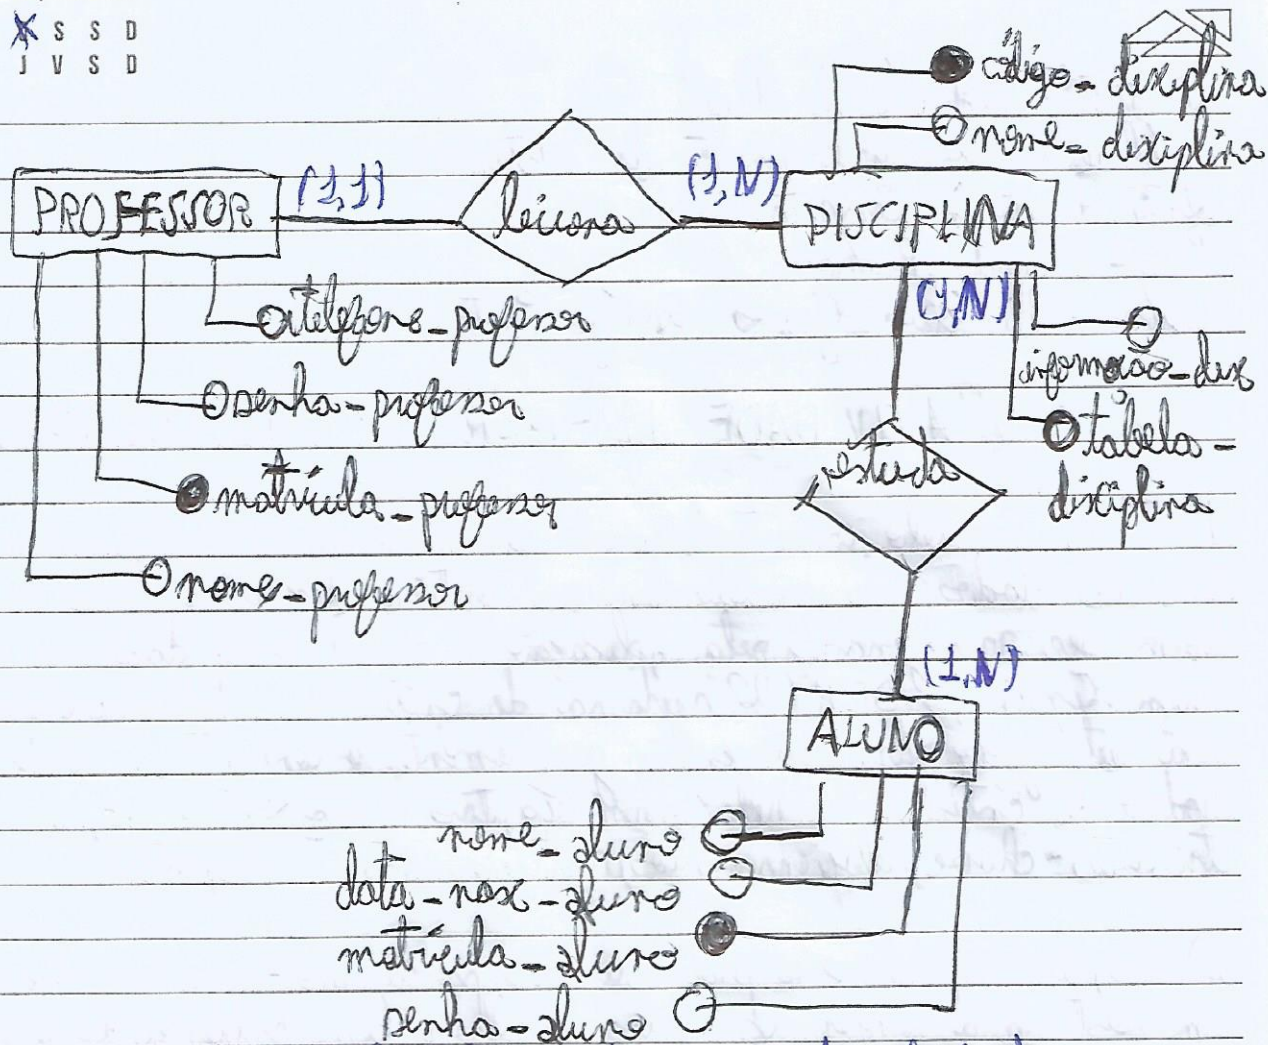 S S D
J V S D
código_disciplina
nome_disciplina
PROFESSOR
(1,1)
leciona
(1,N)
DISCIPLINA
telefone_professor
senha_professor
matrícula_professor
nome_professor
(1,N)
informação_disc
tabela_
disciplina
estuda
(1,N)
ALUNO
nome_aluno
data_nasc_aluno
matrícula_aluno
senha_aluno